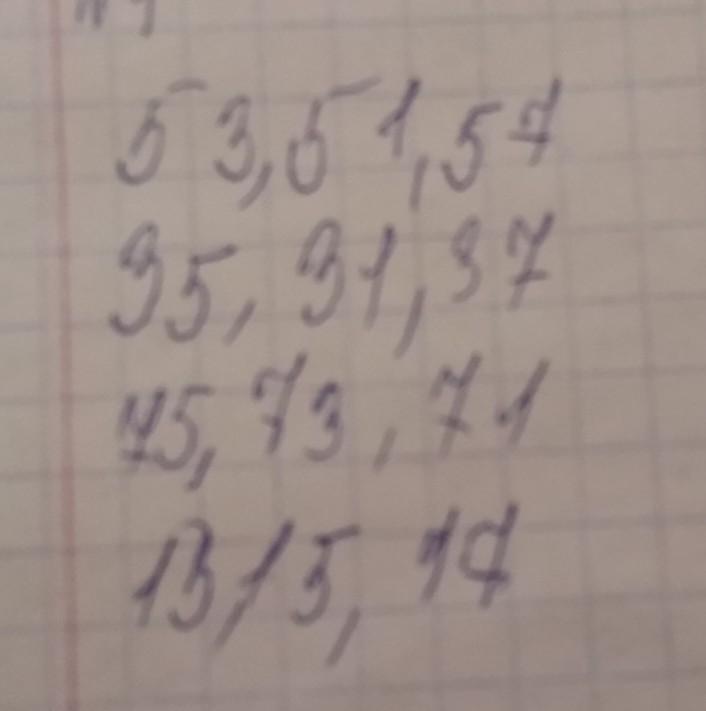 53, 51, 57
35, 31, 37
75, 73, 71
13, 15, 17